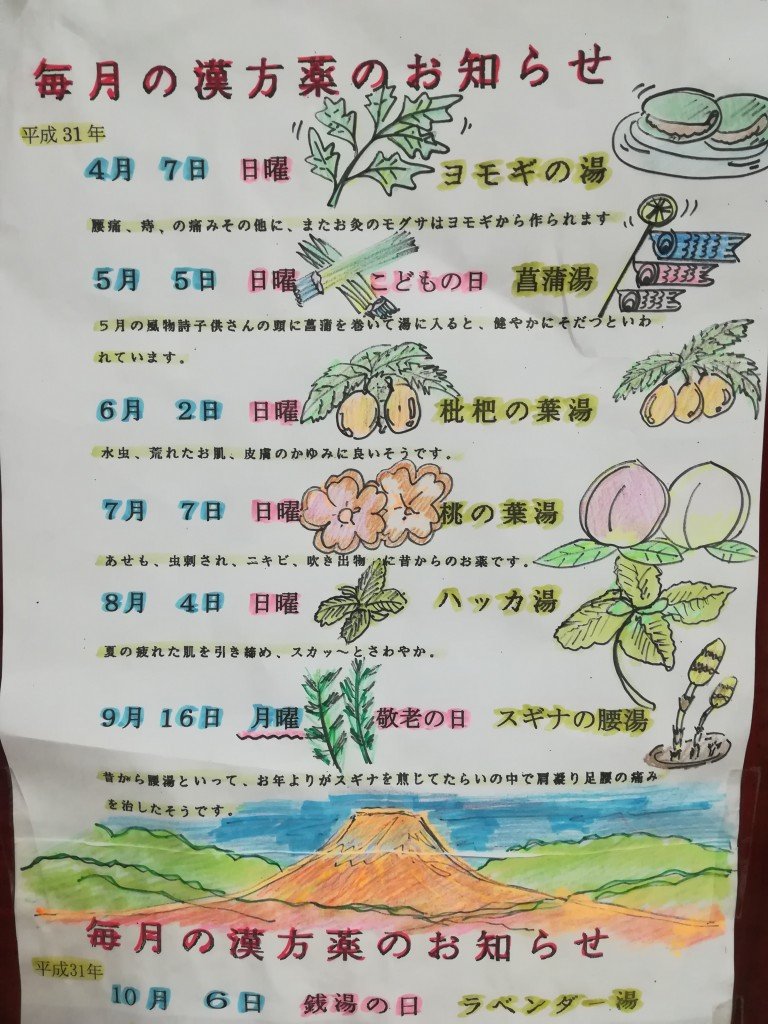 毎月の漢方薬のお知らせ
平成31年
4月 7日 日曜 ヨモギの湯
腰痛、痔、の痛みその他に、またお灸のモグサはヨモギから作られます
5月 5日 日曜 こどもの日 菖蒲湯
5月の風物詩子供さんの頭に菖蒲を巻いて湯に入ると、健やかにそだつといわ
れています。
6月 2日 日曜 枇杷の葉湯
水虫、荒れたお肌、皮膚のかゆみに良いそうです。
7月 7日 日曜 桃の葉湯
あせも、虫刺され、ニキビ、吹き出物 に昔からのお薬です。
8月 4日 日曜 ハッカ湯
夏の疲れた肌を引き締め、スカッ～とさわやか。
9月 16日 月曜 敬老の日 スギナの腰湯
昔から腰湯といって、お年よりがスギナを煎じてたらいの中で肩凝り足腰の痛み
を治したそうです。
毎月の漢方薬のお知らせ
平成31年
10月 6日 銭湯の日 ラベンダー湯